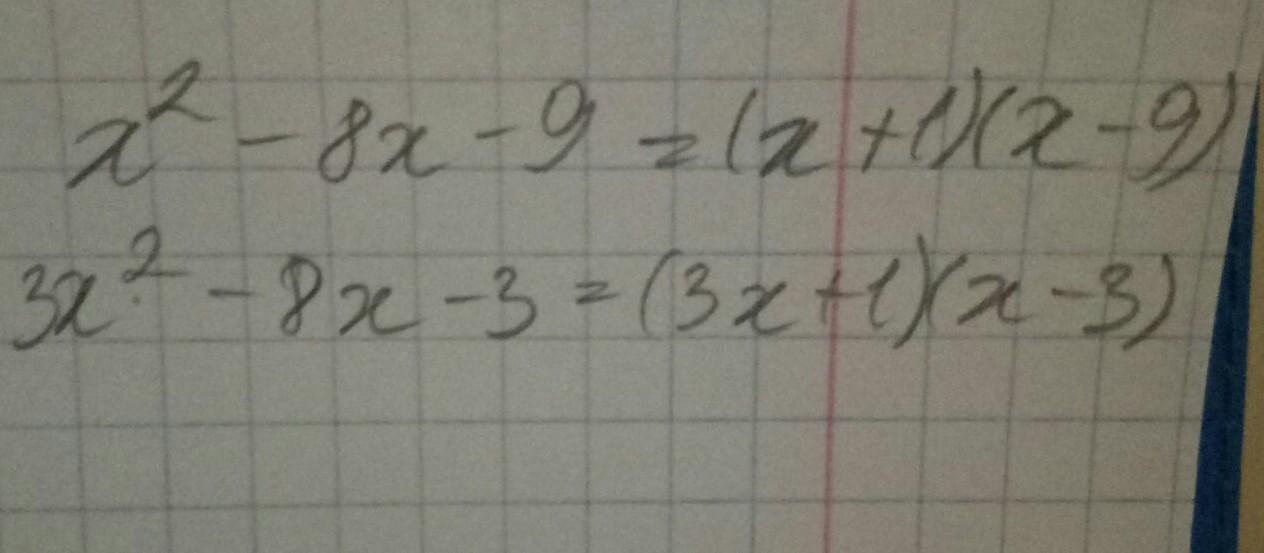 x² - 8x - 9 = (x + 1)(x - 9)
3x² - 8x - 3 = (3x + 1)(x - 3)